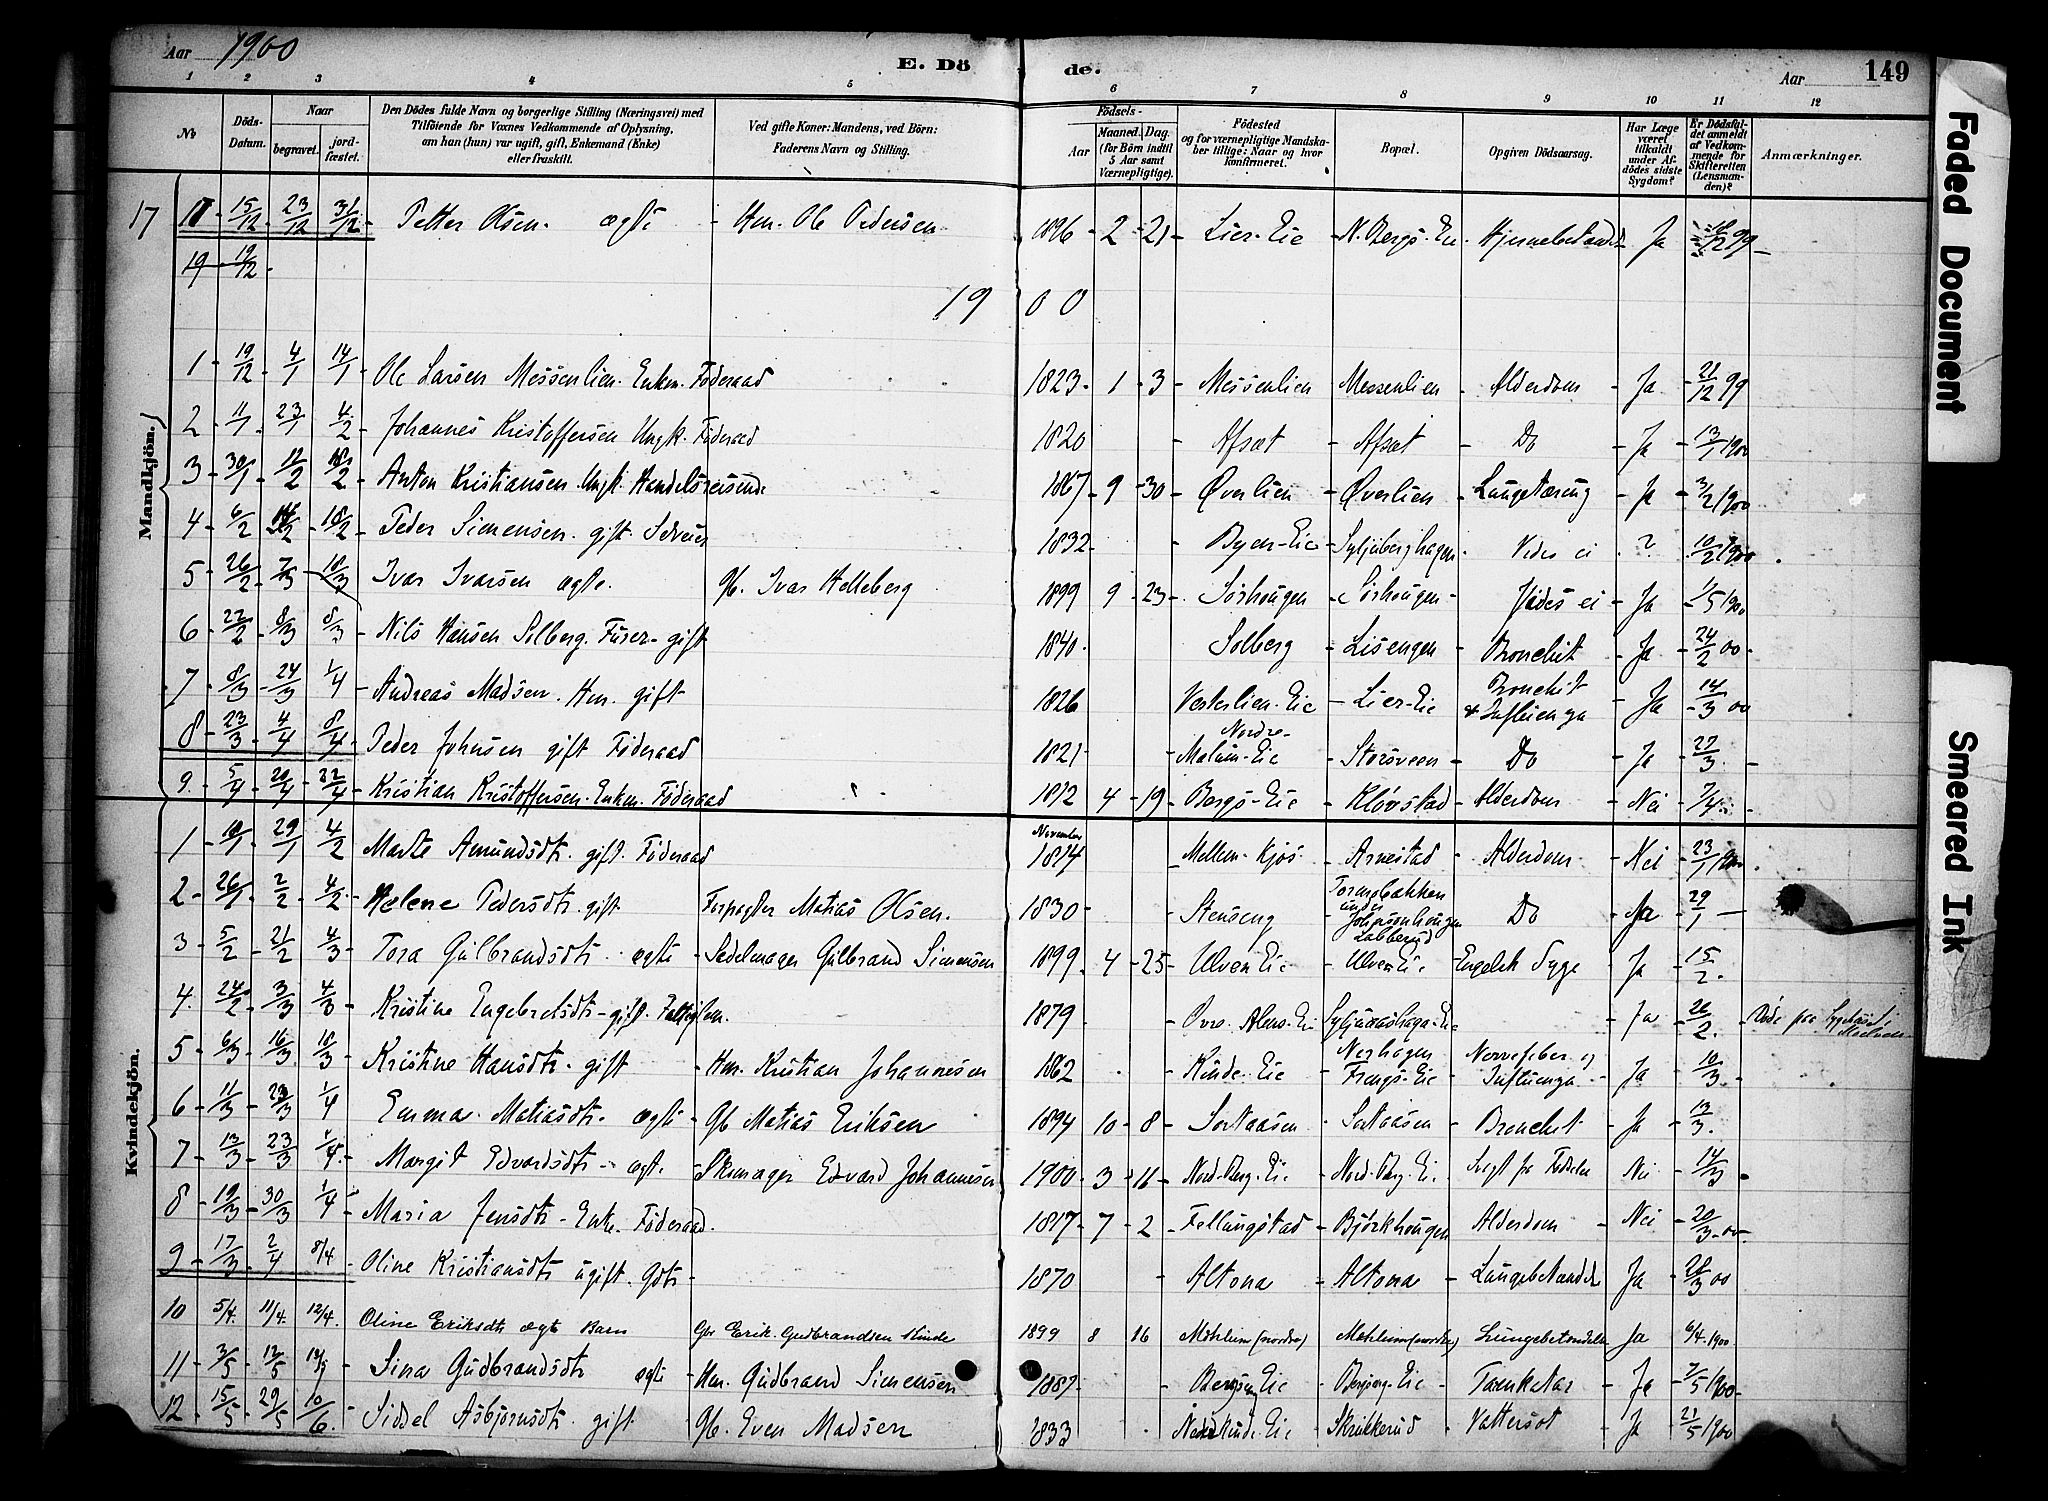 Aar 1900
E. Döde.
Aar 149
1 2 3 4 5 6 7 8 9 10 11 12
No
Döds-Datum.
Naar
begravet.
jord-fæstet.
Den Dödes fulde Navn og borgerlige Stilling (Næringsvei) med
Tilföiende for Voxnes Vedkommende af Oplysning,
om han (hun) var ugift, gift, Enkemand (Enke)
eller fraskilt.
Ved gifte Koner: Mandens, ved Börn:
Faderens Navn og Stilling.
Födsels-
Aar
Maaned. Dag.
(for Börn indtil
5 Aar samt
Værnepligtige).
Födested
og for værnepligtige Mandska-
ber tillige: Naar og hvor
konfirmeret.
Bopæl.
Opgiven Dödsaarsag.
Har Læge
været
tilkaldt
under Af-
dödes sidste
Sygdom?
Er Dödsfal-
det anmeldt
af Vedkom-
mende for
Skifteretten
(Lensman-
den)?
Anmærkninger.
17 15/12 23/12 31/12 Petter Olsen. ægte Hm. Ole Pedersen 1896 2 21 Lier-Eie N. Bergs-Eie Hjernebetændelse Ja 99
19 19/12
1900
Mandkjön.
1 19/12 4/1 14/1 Ole Larsen Messenlien. Enkm. Föderaad 1823 1 3 Messenlien Messenlien Alderdom Ja 21/12 99
2 11/1 23/1 4/2 Johannes Kristoffersen Ungk. Föderaad 1820 Afsæt Afsæt Do Ja 13/1 1900
3 30/1 12/2 18/2 Anton Kristiansen. Ungk. Handelsreisende 1867 9 30 Øverlien Øverlien Lungetæring Ja 3/2 1900
4 6/2 18/2 Peder Simensen. gift. 1832 Byen-Eie Syljuberghagen Vides ei ? 10/2 1900
5 26/2 7/3 18/3 Ivar Ivarsen ægte. Gb. Ivar Helleberg 1899 9 23 Sörhougen Sörhougen Vides ei Ja 1/5 1900
6 22/2 8/3 8/3 Nils Hansen Solberg. gift 1840 Solberg Lisengen Bronchit Ja 24/2 00
7 8/3 24/3 1/4 Andreas Madsen. Hm. gift 1826 Vesterlien. Eie Lier-Eie Bronchit & Influenza Ja 14/3 00
8 23/3 4/4 8/4 Peder Johnsen gift Föderaad 1821 Nordre Malum-Eie Storsveen Do Ja 27/3
9. 5/4 20/4 22/4 Kristian Kristoffersen. Enkem. Föderaad 1812 4 19 Bergs-Eie Klövstad Alderdom Nei 7/4
Kvindekjön.
1 29/1 4/2 Marte Amundsdtr. gift. Föderaad November 1814 Mellem-Kjos Arnestad Alderdom Nei 23/1 1900
2 26/1 2/2 4/2 Helene Pedersdtr. gift Forpagter Matias Olsen. 1830 Stenseng under Do Ja 29/1
3 5/2 21/2 4/3 Tora Gulbrandsdtr. ægte Sadelmager Gulbrand Simensen 1899 4 25 Ulven Eie Ulven Eie Engelsk Syge Ja 15/2.
4. 24/2 3/3 4/3 Kristine Engebretsdtr gift. 1879 Ja 26/2. Döde paa Sygehuset
5 6/3 16/3 18/3 Kristine Hansdtr. gift Hm. Kristian Johannesen 1862 Kinde. Eie Frengs-Eie Influenza Ja 10/3
6 11/3 23/3 1/4 Emma. Matiasdtr. ægte Gb Matias Eriksen 1894 10 8 Sortaasen Sortaasen Bronchit Ja 13/3.
7 13/3 23/3 1/4. Margit Edvardsdtr. ægte Skomager Edvard Johannesen 1900 3 Nord-Berg. Eie Nord-Berg. Eie Svagt fra Födselen Nei 14/3
8 19/3 30/3 1/4 Maria Jensdtr. Enke. Föderaad. 1817 7 2 Fellungstad Björkhougen Alderdom Nei 20/3 00
9 17/3 2/4 8/4 Oline Kristiansdtr ugift. Gdtr 1870 Altona Altona Lungebetændelse Ja 21/3 00
10 5/4. 11/4. 12/4. Oline Eriksdtr ægte Barn Gbr Erik Gudbrandsen Kinde 1899 8 16 Mæhlum (nordre) Mæhlum (nordre) Lungebetændelse Ja 6/4. 1900
11 3/5 12/5 13/5 Sina Gudbrandsdtr ægte Hm. Gudbrand Simensen 1887 Bergseng Eie Bergseng-Eie Ja 7/5 1900
12 15/5 29/5 10/6. Siddel Asbjörnsdtr. gift Gb. Even Madsen 1833 Kinde-Eie Skrukkerud Vattersot Ja 21/5 1900
Faded Document
Smeared Ink